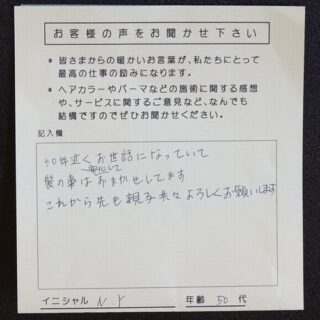 お客様の声をお聞かせ下さい
* 皆さまからの暖かいお言葉が、私たちにとって
最高の仕事の励みになります。
* ヘアカラーやパーマなどの施術に関する感想
や、サービスに関するご意見など、なんでも
結構ですのでぜひお聞かせください。
記入欄
30年近くお世話になっていて
安心して
髪の事はおまかせしてます
これから先も親子共々よろしくお願いします
イニシャル N.Y 年齢 50 代